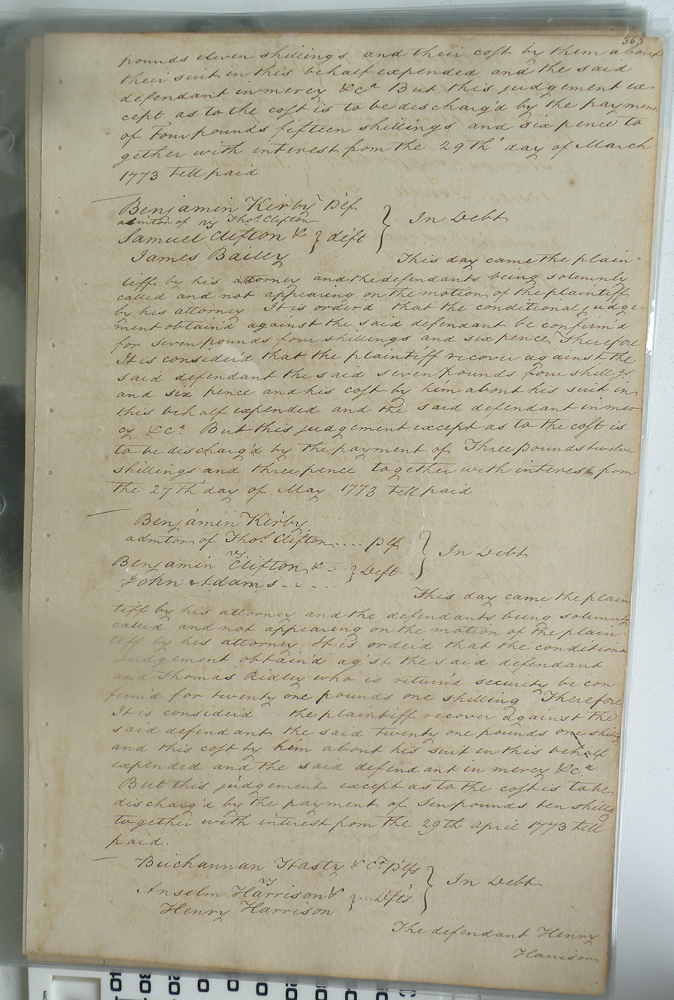 363
pounds eleven shillings and their cost by them about
their suit in this behalf expended and the said
defendant in mercy &ca But this judgement ex-
cept as to the cost is to be discharg'd by the payment
of Four pounds fifteen shillings and six pence to
gether with interest from the 29th day of March
1773 till paid
Benjamin Kirby Plf
admton of vs Thos Clifton
Samuel Clifton & } deft } In Debt
James Bailey
This day came the plain-
tiff, by his attorney and the defendants being solemnly
called and not appearing on the motion of the plaintiff
by his attorney It is orderd that the conditional judge-
ment obtaind against the said defendant be confirm'd
for Seven pounds four shillings and six pence Therefore
It is consider'd that the plaintiff recover against the
said defendant the said seven pounds four shillgs
and six pence and his cost by him about his suit in
this behalf expended and the said defendant in mer
cy &ca But this judgement except as to the cost is
to be discharg'd by the payment of Three pounds twelve
shillings and three pence together with interest from
the 27th day of May 1773 till paid
Benjamin Kirby
admton of Thos Clifton .... Plf
vs
Benjamin Clifton & } Deft } In Debt
John Adams - . . .
This day came the plain
tiff by his attorney and the defendants being solemnly
called and not appearing on the motion of the plain-
tiff by his attorney It is orderd that the conditional
Judgement obtain'd agst the said defendant
and Thomas Ridley who is return'd security be con
firm'd for twenty one pounds one shilling Therefore
It is consider'd the plaintiff recover against the
said defendant the said twenty one pounds one shillg
and this cost by him about his suit in this behalf
expended and the said defendant in mercy &ca
But this judgement except as to the cost is to be
discharg'd by the payment of Ten pounds ten shillgs
together with interest from the 29th April 1773 till
paid.
Buchannan Hasty & Co Plfs
vs
Anselm Harrison & } ... Defts } In Debt
Henry Harrison
The defendant Henry
Harrison